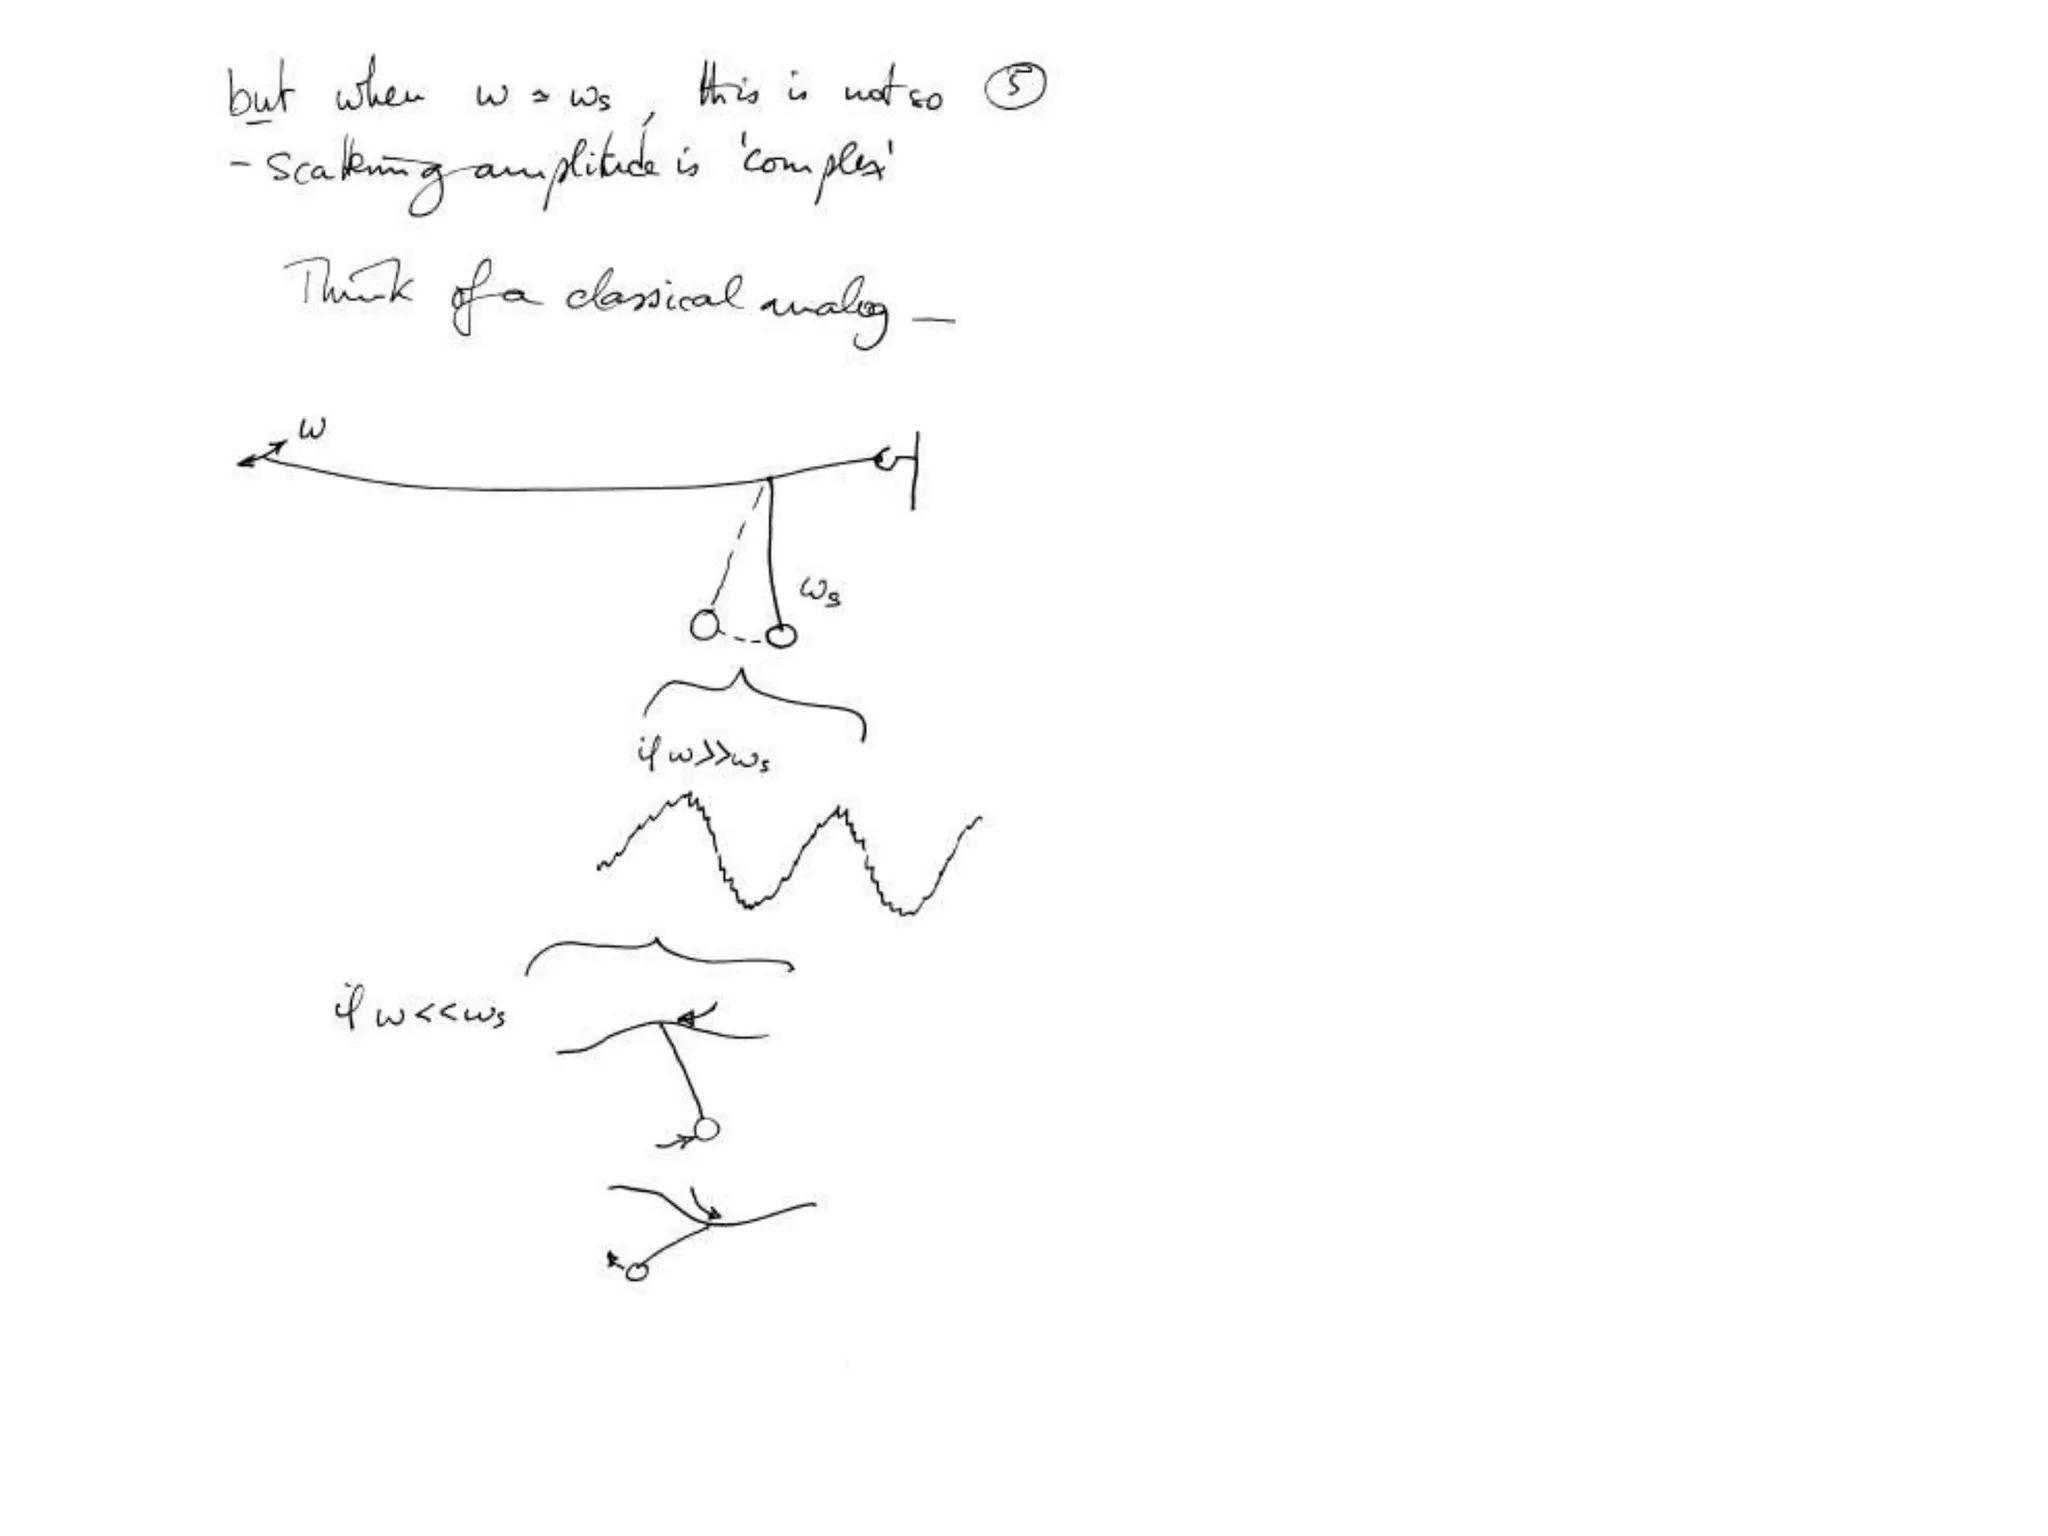 but when ω ≃ ωs, this is not so ⑤
- scattering amplitude is 'complex'
Think of a classical analog —
ω
ωs
if ω>>ωs
if ω<<ωs